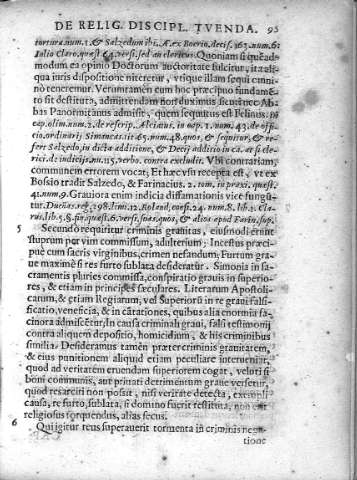 DE RELIG. DISCIPL. TVENDA. 95
tortura.num.1.& Salzedum ibi. A. ex Boerio, decis. 163.num.6:
Iulio Claro,quæst.64.versi.sed an clericus. Quoniam si quéad-
modum ea opinio Doctorum auctoritate fulcitur, ita aliqua
iuris dispositione niteretur, vtique illam sequi omni-
nò teneremur. Verumtamen cum hoc præcipuo fundamé-
to sit destituta, admittendam non duximus sicut nec Ab-
bas Panormitanus admisit, quem sequutus est Felinus. in
cap. olim.num.2.de rescrip. Alciatus. in cap. 1. num. 43.de offi-
cio.ordinarij Simancas.tit 65.num.48.quos, & sequitur, & re-
fert Salzedo, in dicta additione, & Decij additio in ca. at si cle-
rici. de iudicijs.nu.15.verbo. contra excludit. Vbi contrariam,
communem errorem vocat; Et hæc vsu recepta est, vt ex
Bossio tradit Salzedo, & Farinacius. 2. tom. in praxi. quæst.
41.num.9. Grauiora enim indicia diffamationis vice fungú-
tur. Dueñas.reg.198.limi.12. Roland.consi.24. num.8. lib.1. Cla-
rus.lib.5.§.fin.quæst.6.versi.suas.quos, & alios apud Farin.sup.
5 Secundò requiritur criminis grauitas, eiusmodi erunt
stuprum per vim commissum, adulterium; Incestus præci-
puè cum sacris virginibus, crimen nefandum: Furtum gra-
ue maximè si res furto sublata desideratur. Simonia in sa-
cramentis pluries commissa, conspiratio grauis in superio-
res, & etiam in principes sæculares. Literarum Apostoli-
carum, & etiam Regiarum, vel Superiorũ in re graui falsifi-
catio, veneficia, & in cãtationes, quibus alia enormia fa-
cinora admiscẽtur, In causa criminali graui, falsi testimonij
contra aliquem depositio, homicidium, & his criminibus
similia. Desideramus tamẽn præter criminis grauitatem,
& eius punitionem aliquid etiam peculiare interueniat
quod ad veritatem eruendam superiorem cogat, veluti si
boni communis, aut priuati detrimentum graue versetur,
quod resarciri non possit, nisi veritate detecta, exempli
causa, re furto, sublata, si domino fuerit restituta, non erit
religiosus torquendus, alias secus.
6 Qui igitur reus superauerit tormenta in criminis nega-
tione